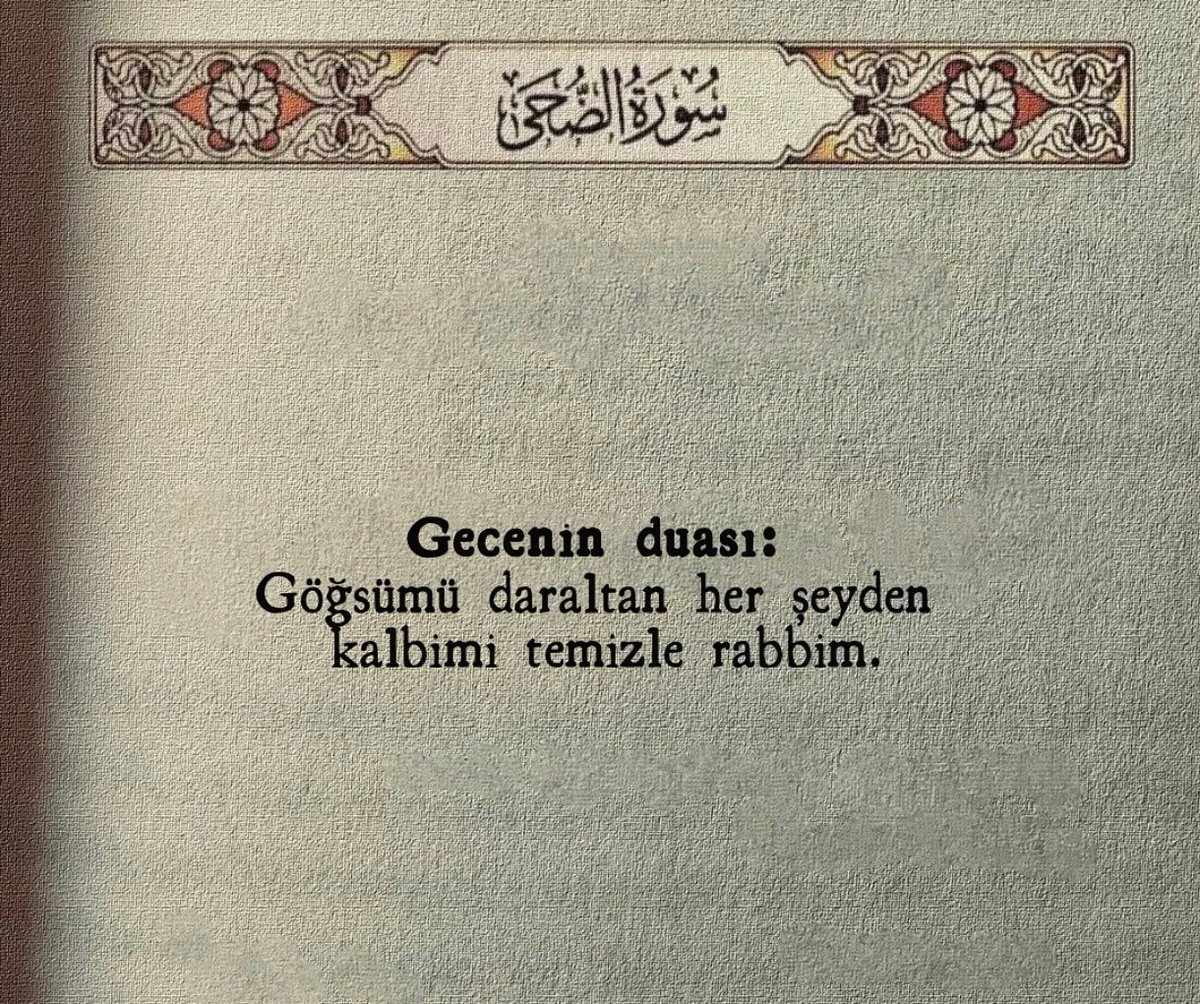 سُورَةُ الضُّحَى
Gecenin duası:
Göğsümü daraltan her şeyden
kalbimi temizle rabbim.